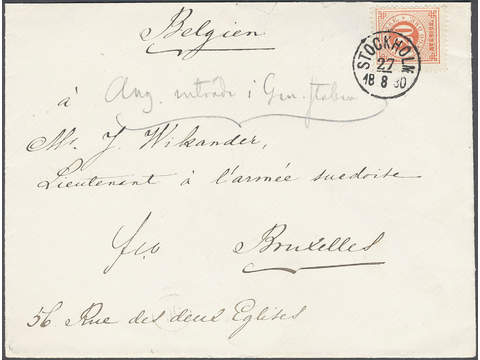 Belgien
STOCKHOLM
27
18 8 80
à Ang. inträde i Gen. staben
Mr. J. Wikander,
Lieutenant à l'armée suedoise
Bruxelles
56 Rue des deux Eglises